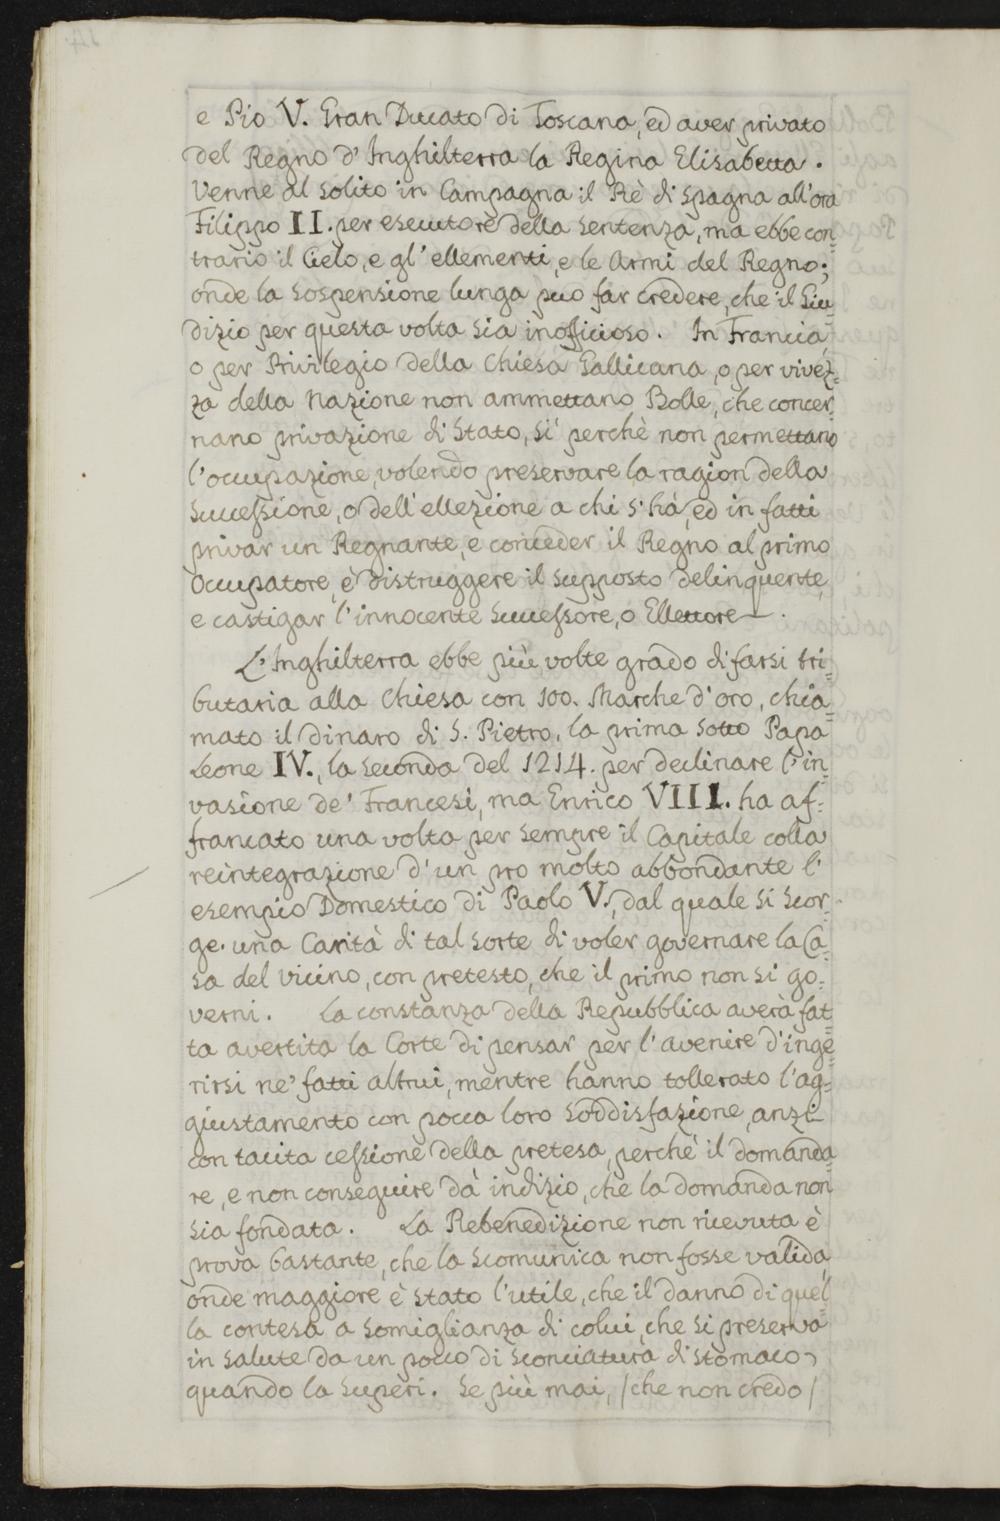 e Pio V. Gran Ducato di Toscana, ed aver privato
del Regno d'Inghilterra la Regina Elisabetta.
Venne al solito in Campagna il Rè di Spagna all'ora
Filippo II. per esecutore della sentenza, ma ebbe con-
trario il Cielo, e gl'ellementi, e le Armi del Regno;
onde la sospensione lunga può far credere, che il Giu-
dizio per questa volta sia inofficioso. In Francia
o per Privilegio della Chiesa Gallicana, o per vivez-
za della Nazione non ammettano Bolle, che concer-
nano privazione di Stato, sì perchè non permettano
l'occupazione, volendo preservare la ragion della
Successione, o dell'ellezione a chi s'hà, ed in fatti
privar un Regnante, e conceder il Regno al primo
Occupatore, è distruggere il supposto delinquente,
e castigar l'innocente Successore, o Ellettore.
L'Inghilterra ebbe più volte grado di farsi tri-
butaria alla Chiesa con 100. Marche d'oro, chia-
mato il dinaro di S. Pietro, la prima sotto Papa
Leone IV., la seconda del 1214. per declinare l'in-
vasione de' Francesi, ma Enrico VIII. ha af-
francato una volta per sempre il Capitale colla
reintegrazione d'un pro molto abbondante l'
esempio Domestico di Paolo V., dal quale si scor-
ge una Carità di tal sorte di voler governare la Ca-
sa del vicino, con pretesto, che il primo non si go-
verni. La constanza della Repubblica averà fat-
ta avertita la Corte di pensar per l'avenire d'inge-
rirsi ne' fatti altrui, mentre hanno tollerato l'ag-
giustamento con pocca loro soddisfazione, anzi
con tacita cessione della pretesa, perchè il domanda-
re, e non conseguire dà indizio, che la domanda non
sia fondata. La Rebenedizione non ricevuta è
prova bastante, che la scomunica non fosse valida,
onde maggiore è stato l'utile, che il danno di quel-
la contesa a somiglianza di colui, che si preserva
in salute da un pocco di sconciatura di stomaco,
quando la superi. Se più mai, /che non credo/